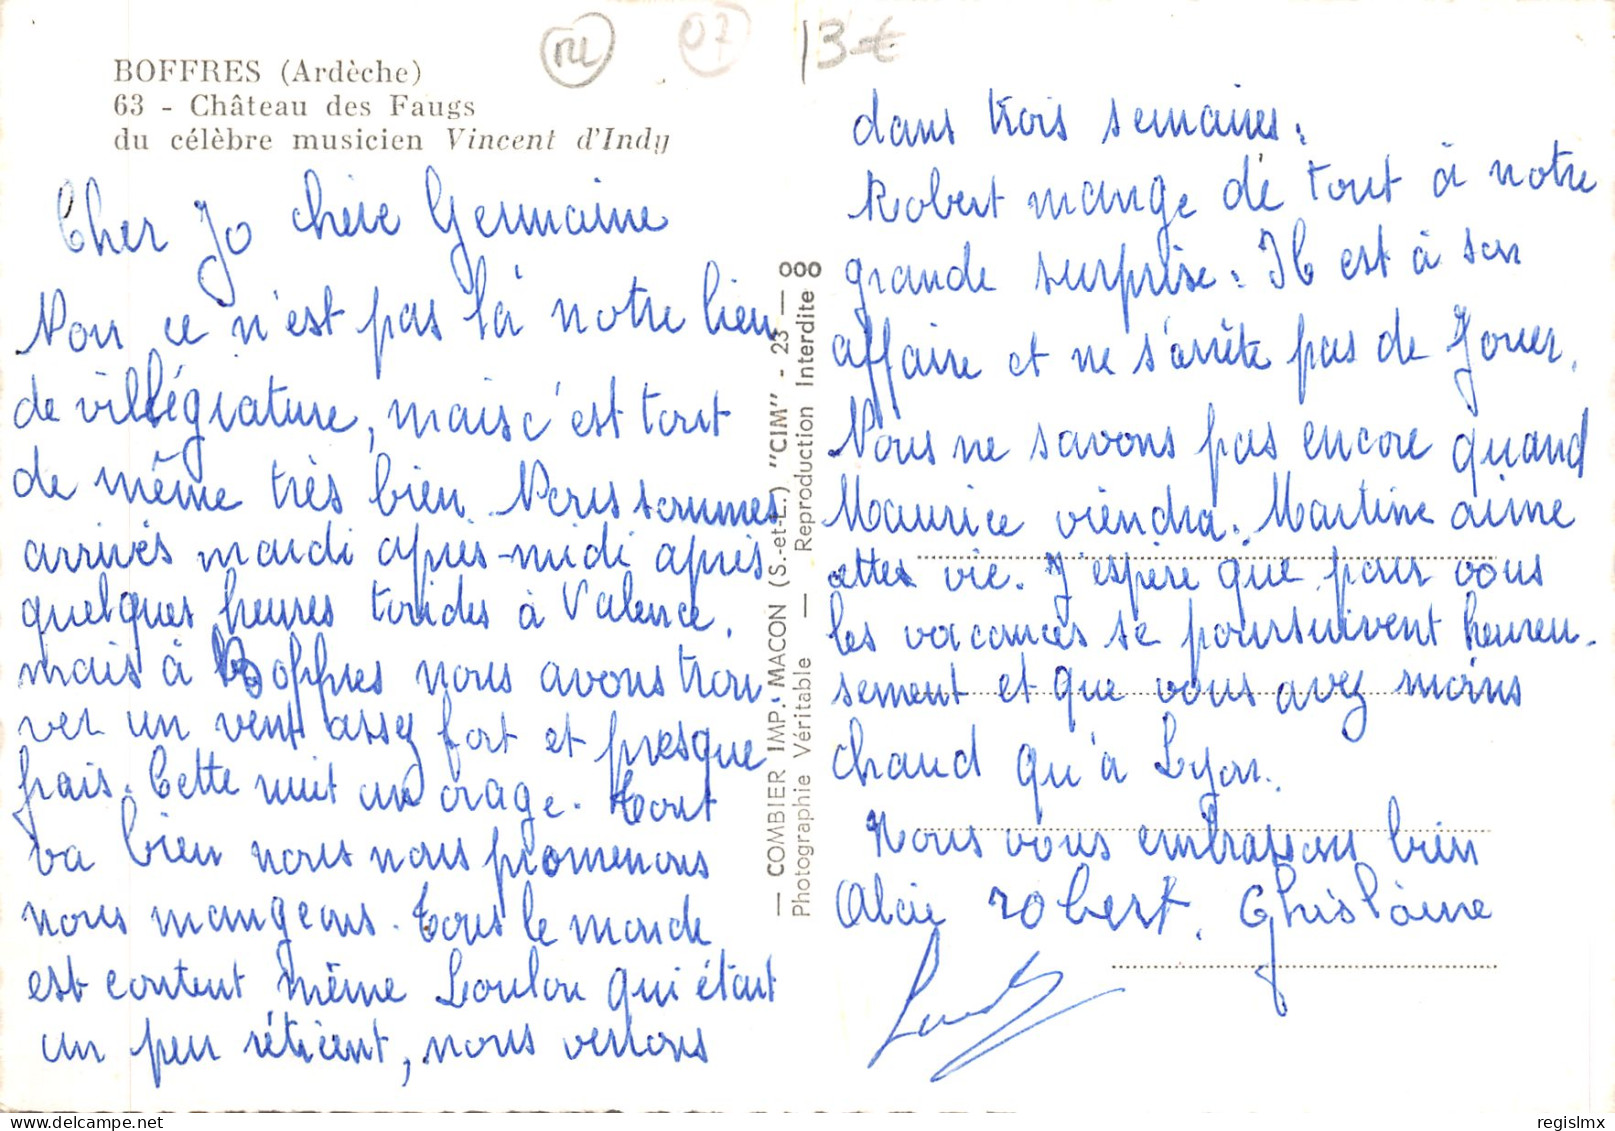 BOFFRES (Ardèche)
63 - Château des Faugs
du célèbre musicien Vincent d'Indy
Cher Jo chère Germaine
Non ce n'est pas là notre lieu
de villégiature, mais c'est tout
de même très bien. Nous sommes
arrivés mardi après-midi après
quelques heures torrides à Valence,
mais à Boffres nous avons trou
ver un vent assez fort et presque
frais. Cette nuit un orage. Tout
va bien nous nous promenons
nous mangeons. Tous le monde
est content même Loulou qui était
un peu réticent, nous verrons
dans trois semaines.
Robert mange de tout à notre
grande surprise. Il est à son
affaire et ne s'arrête pas de Jouer.
Nous ne savons pas encore quand
Maurice viendra. Martine aime
cette vie. J'espère que pour vous
les vacances se poursuivent heureu-
sement et que vous avez moins
chaud qu'à Lyon.
Nous vous embrassons bien
robert. Ghislaine
— COMBIER IMP. MACON (S.-et-L.) "CIM" - 23 — 000
Photographie Véritable — Reproduction Interdite
07
13€
regislmx